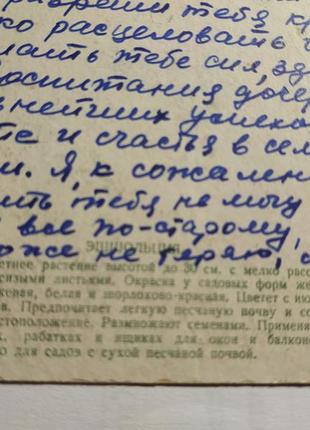 разреши тебя кр
ко расцеловать и
лать тебе сил, здо
воспитания дочер
нейших успехов
те и счастья в сем
и. Я, к сожален
ить тебя не могу
все по-старому,
оже не теряю, с
ЭШШОЛЬЦИЯ
етнее растение высотой до 30 см. с мелко расс
сизыми листьями. Окраска у садовых форм же
жевая, белая и шорлохово-красная. Цветет с ию
я. Предпочитает легкую песчаную почву и со
стоположение. Размножают семенами. Применя
х, рабатках и ящиках для окон и балкон
о для садов с сухой песчаной почвой.